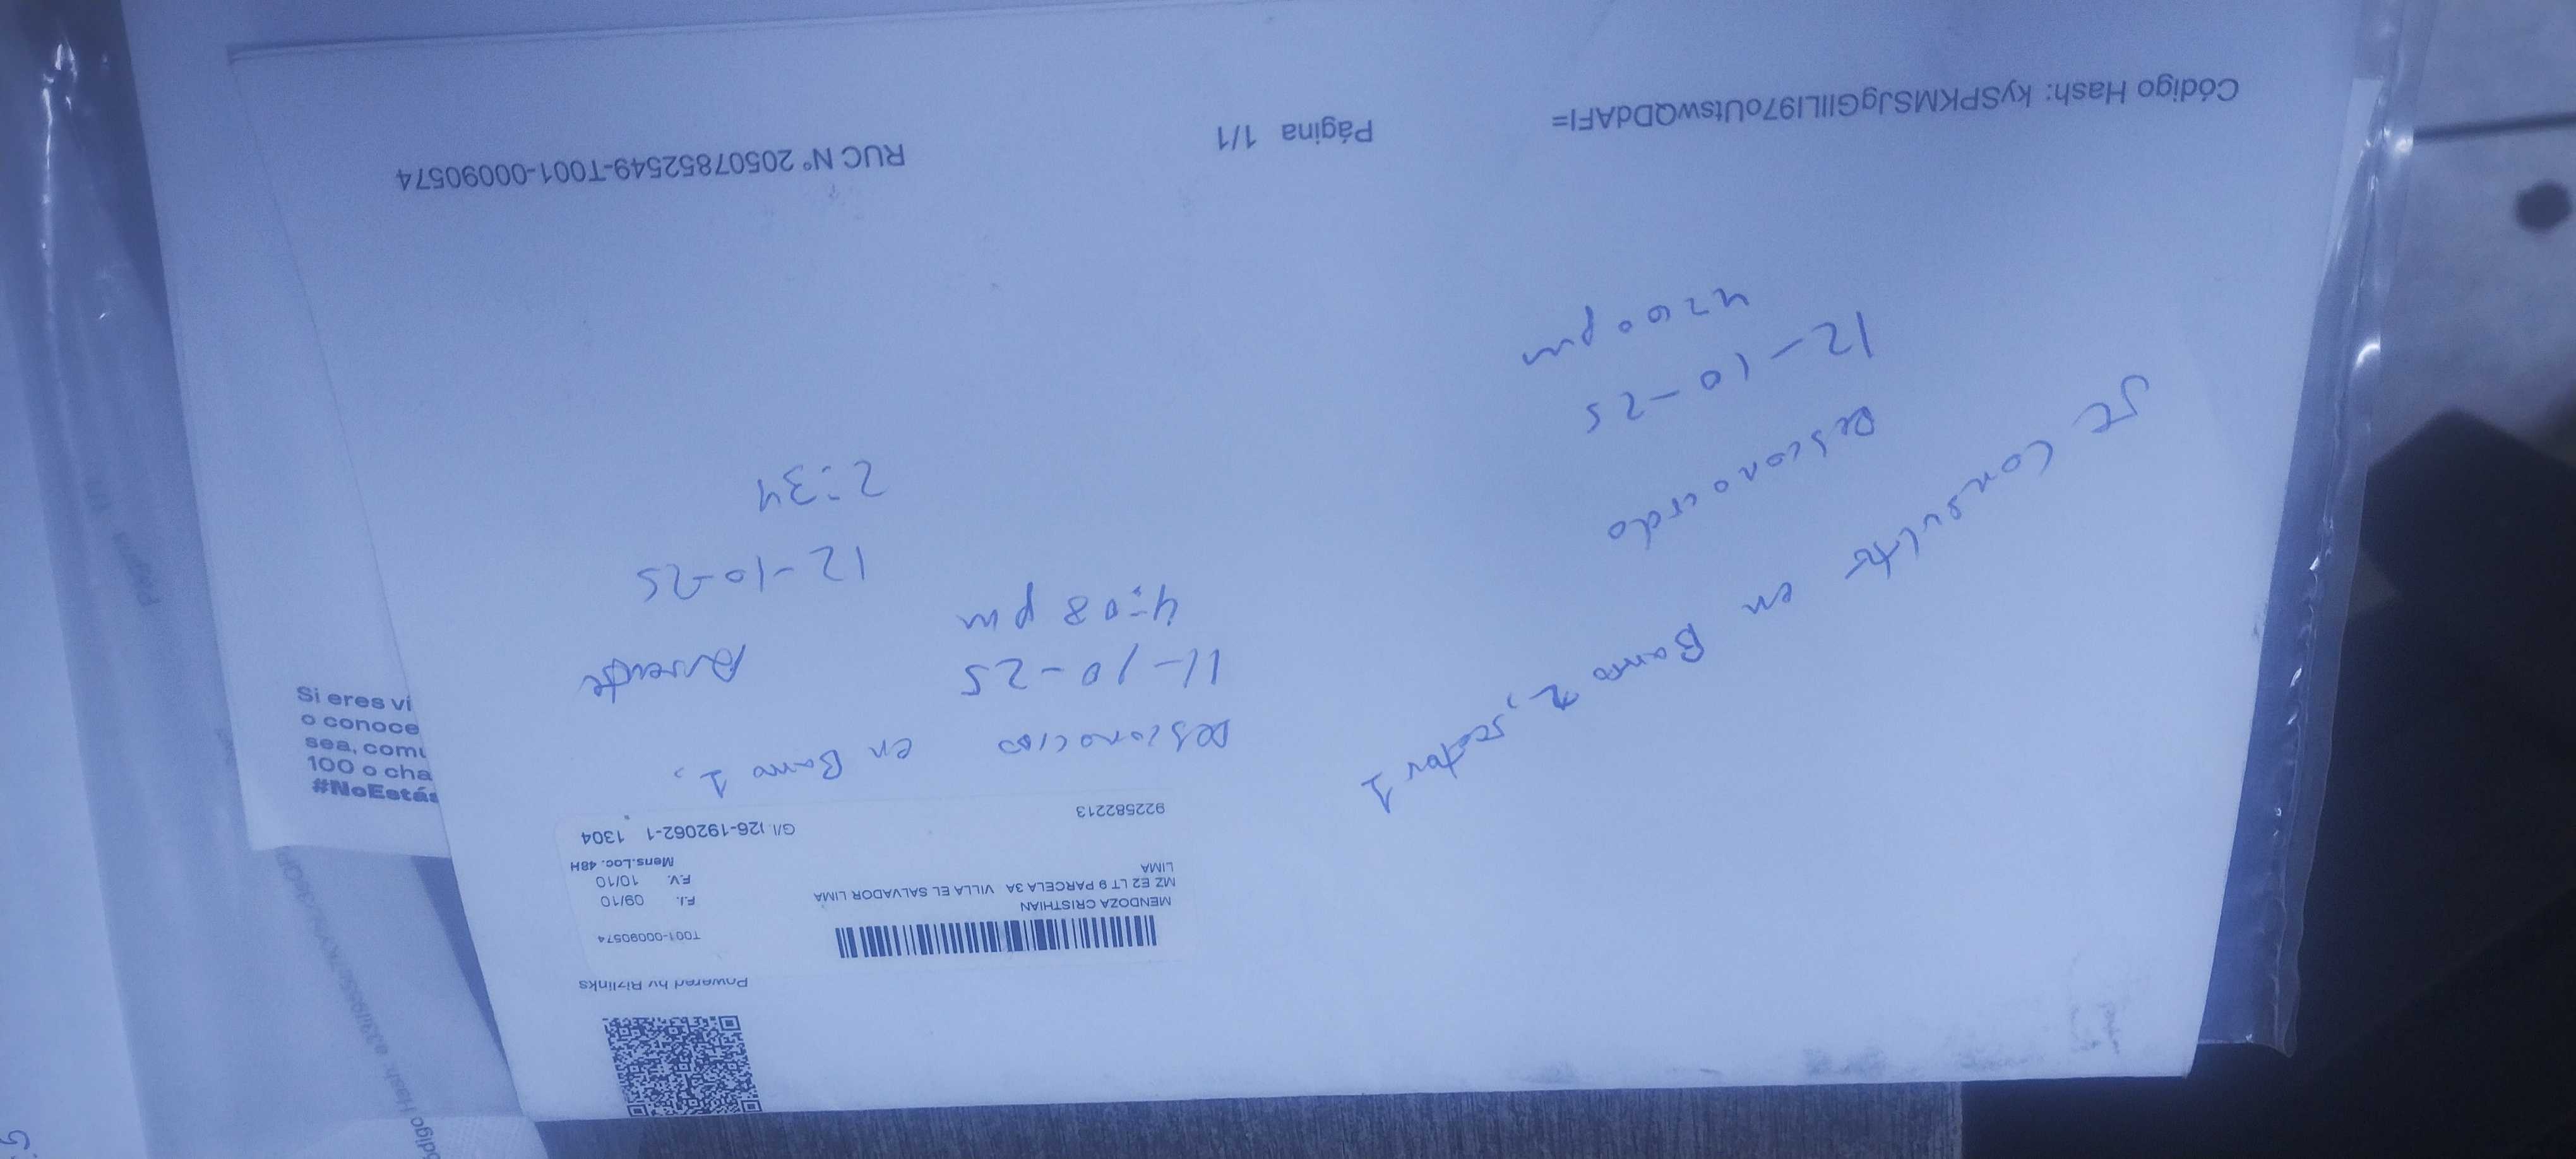 Powered by Bizlinks
T001-00090574
F.I. 09/10
F.V. 10/10
Mens.Loc. 48H
MENDOZA CRISTHIAN
MZ E2 LT 9 PARCELA 3A VILLA EL SALVADOR LIMA
LIMA
922582213
26-192062-1 1304
Desconocido en Barrio 1,
11-10-25
4:08 pm
Ausente
12-10-25
2:34
Se consulte en Barrio 2, sector 1
Desconocido
12-10-25
pm
Código Hash: kySPKMSJgGIILI97oUtswQDdAFI=
Página 1/1
RUC N° 20507852549-T001-00090574
Si eres ví
o conoce
sea, comu
100 o cha
#NoEstás